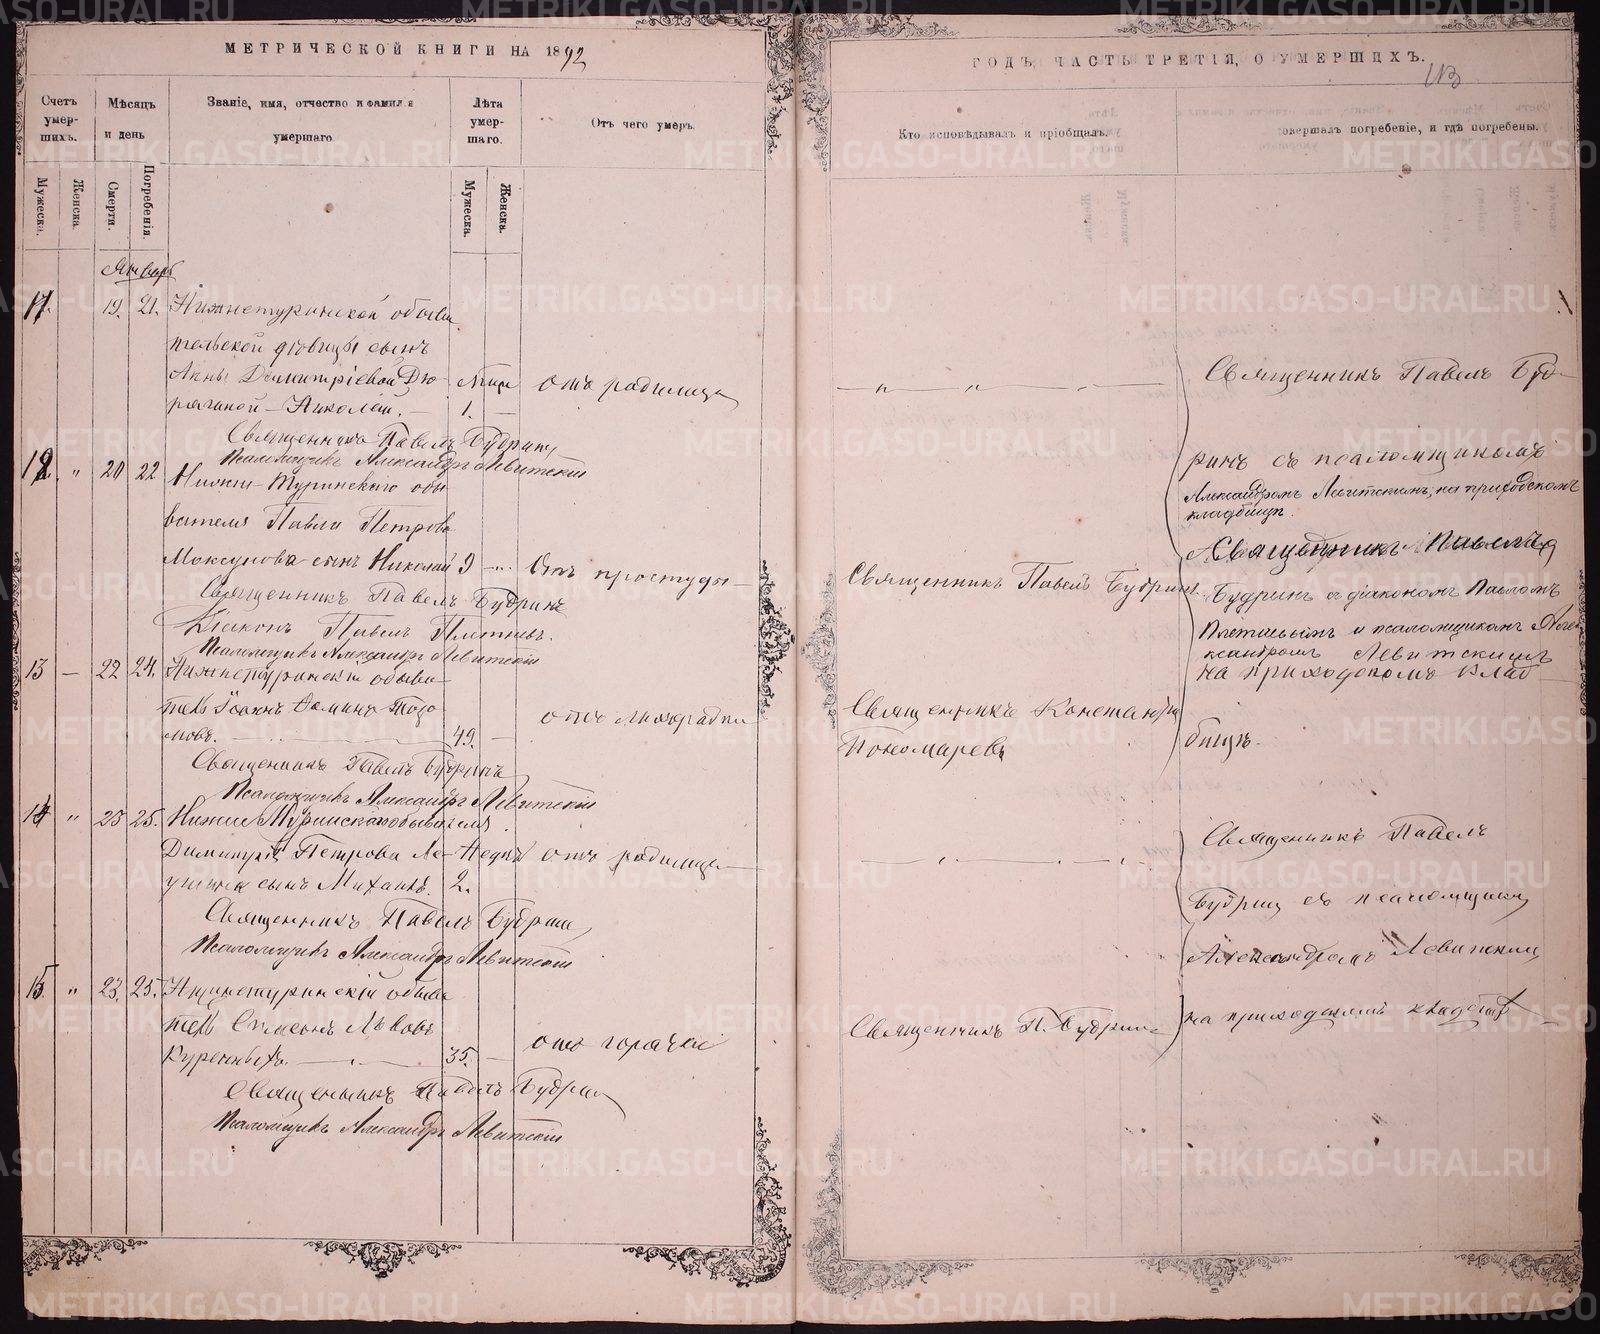 МЕТРИЧЕСКОЙ КНИГИ НА 1892
Счетъ умер-шихъ.
Мужеска.
Женска.
Мѣсяцъ и день
Смерти.
Погребенія.
Званіе, имя, отчество и фамилія умершаго.
Лѣта умер-шаго.
Мужеска.
Женска.
Отъ чего умеръ.
Январь
11. 19. 21. Нижнетуринской обыва
тельской дѣвицы сынъ
Анны Димитріевой
Николай. — 1. — отъ родимца
Священникъ Павелъ Будринъ
Псаломщикъ Александръ Левитскій
12. " 20 22 Нижне-Туринскаго обы
вателя Павла Петрова
Моксунова сынъ Николай 9 — Отъ простуды —
Священникъ Павелъ Будринъ
Діаконъ Павелъ Плотневъ.
Псаломщикъ Александръ Левитскій
13 — 22 24. Нижнетуринскій обыва-
тель Іоаннъ
мовъ. — 49. — отъ лихорадки
Священникъ Павелъ Будринъ
Псаломщикъ Александръ Левитскій
14 " 23 25. Нижне Туринскаго обывателя
Димитрія Петрова Недѣль отъ родимца
сынъ Михаилъ. 2.
Священникъ Павелъ Будринъ
Псаломщикъ Александръ Левитскій
15. " 23. 25. Нижнетуринскій обыва
тель Симеонъ Львовъ
Куренныхъ. — 35. — отъ горячки
Священникъ Павелъ Будринъ
Псаломщикъ Александръ Левитскій
ГОДЪ, ЧАСТЬ ТРЕТІЯ, О УМЕРШИХЪ.
113
Кто исповѣдывалъ и пріобщалъ.
совершалъ погребеніе, и гдѣ погребены.
Священникъ Павелъ Буд-
ринъ съ псаломщикомъ
Александромъ Левитскимъ, на приходскомъ
кладбищѣ.
Священникъ Павелъ Будринъ
Священникъ Павелъ
Будринъ съ діакономъ Павломъ
Плотневымъ и псаломщикомъ Алек
сандромъ Левитскимъ
на приходскомъ клад
бищѣ.
Священникъ Константинъ
Пономаревъ
Священникъ Павелъ
Будринъ съ псаломщикомъ
Александромъ Левитскимъ
на приходскомъ кладбищѣ
Священникъ П. Будринъ
METRIKI.GASO-URAL.RU